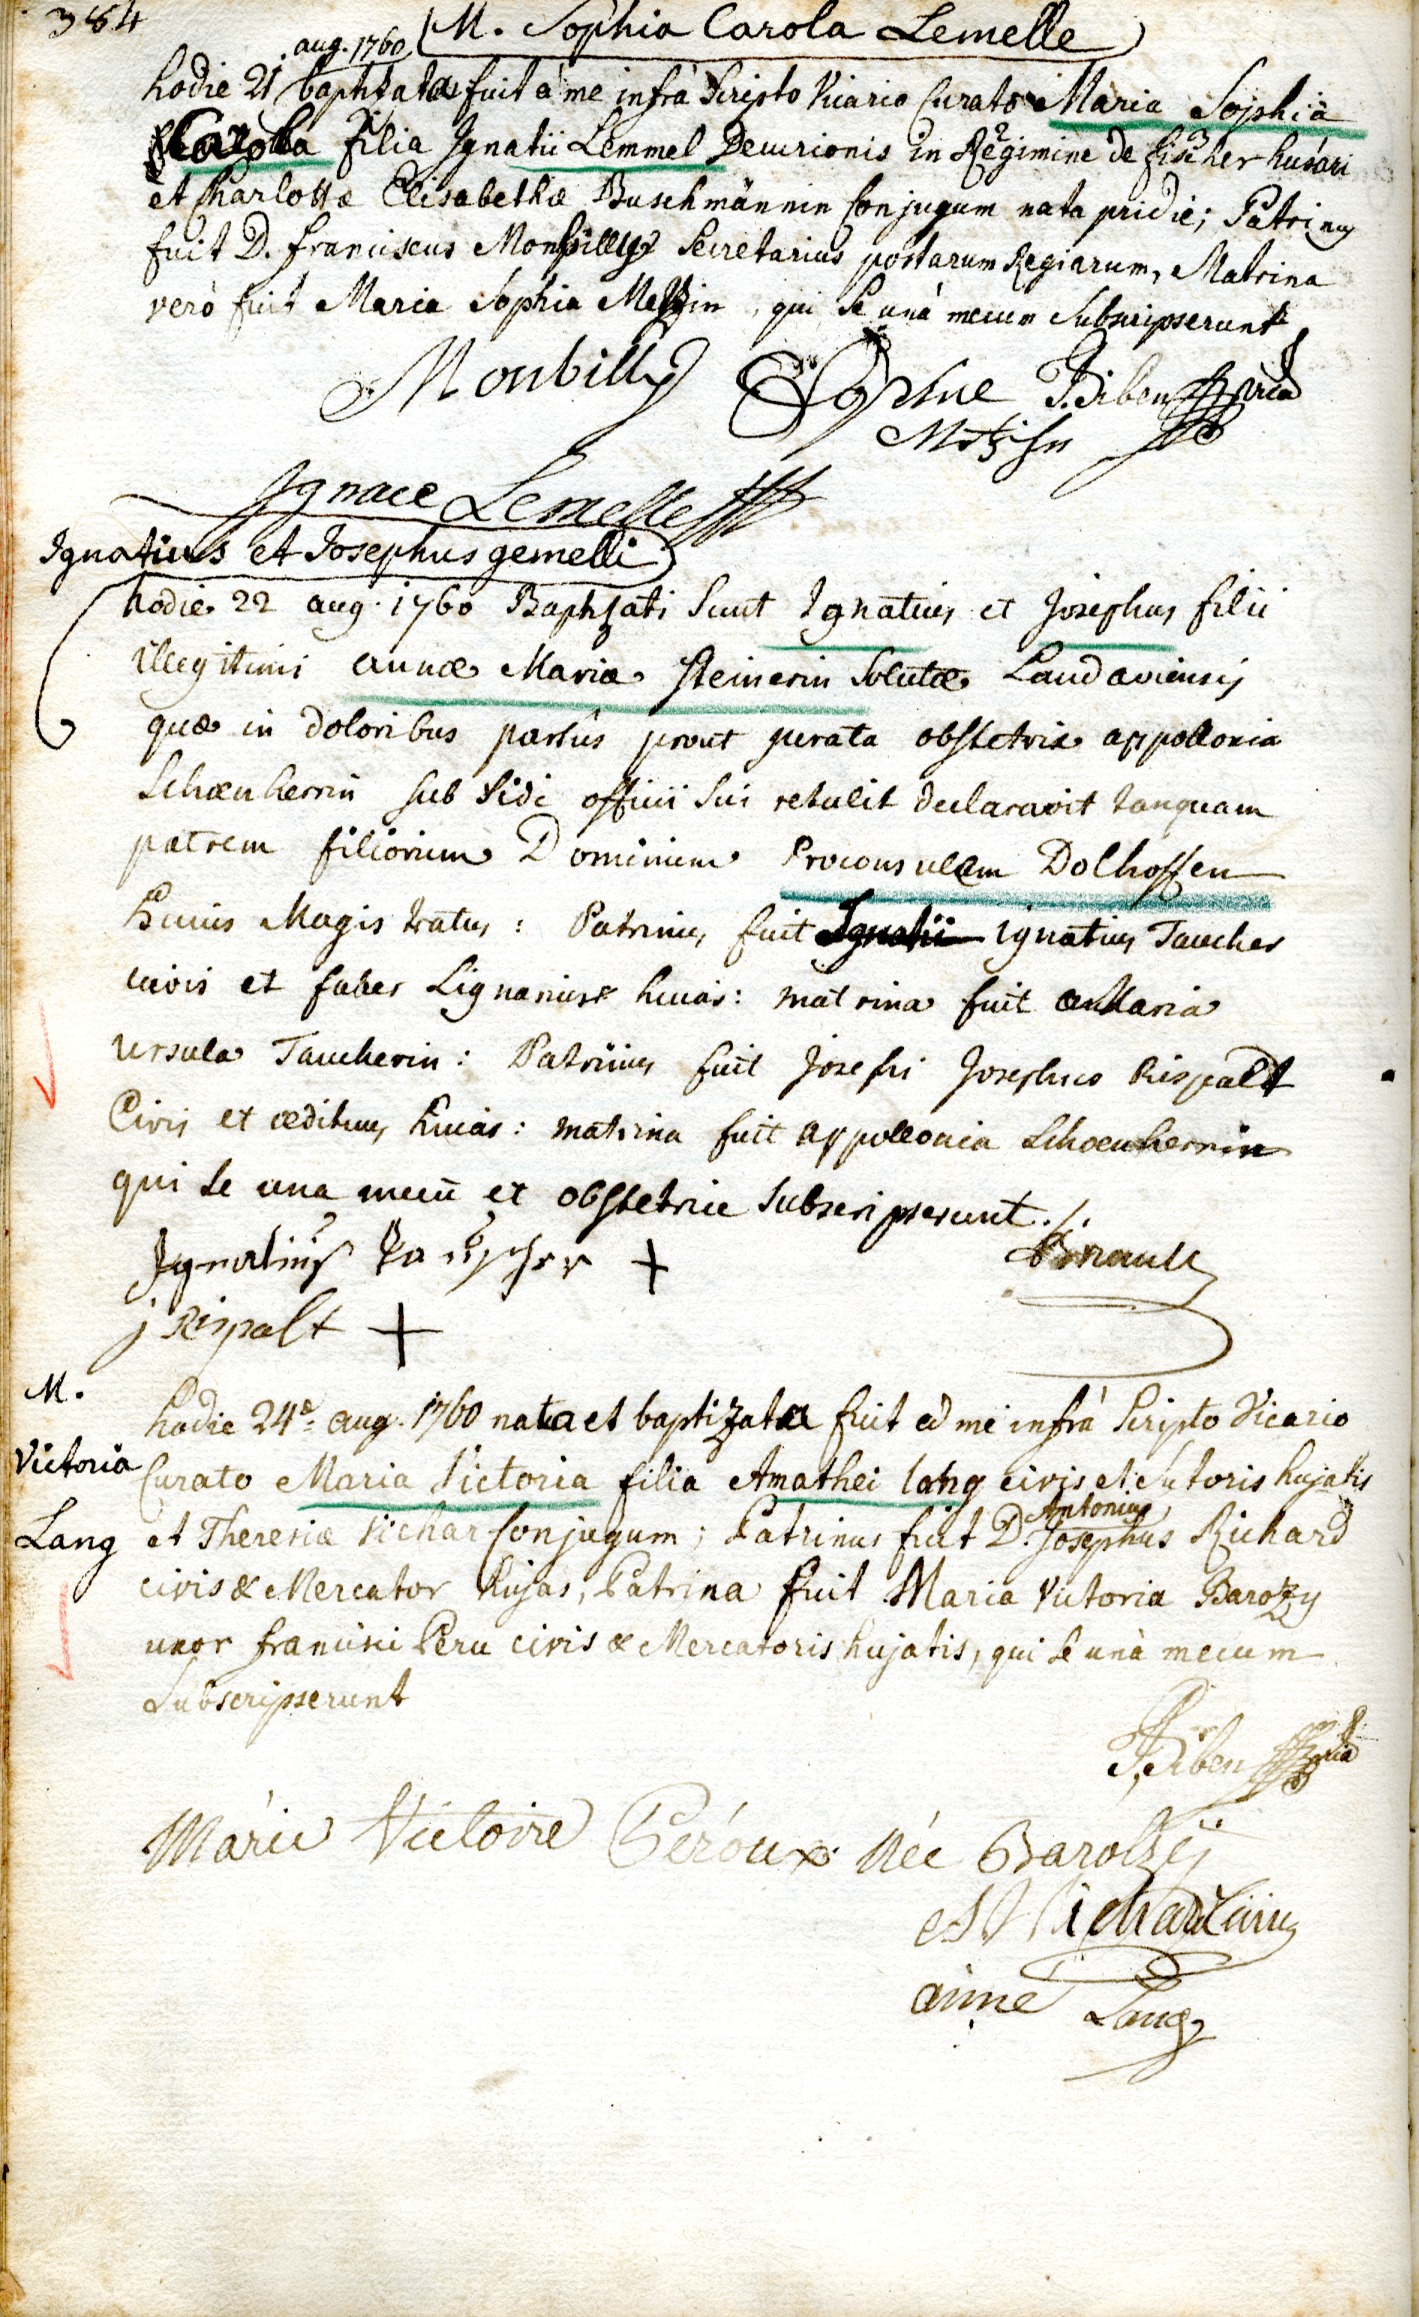 384
M. Sophia Carola Lemelle
aug. 1760
hodie 21 baptzata fuit à me infrà Scripto Vicario Curato Maria Sophia
Carola filia Ignatii Lemmel Decurionis in Regimine de fischer husari
et Charlottæ Elisabethæ Buschmännin Conjugum nata pridie; Patrinus
fuit D. franciscus Monbilly Secretarius postarum Regiarum, Matrina
verò fuit Maria Sophia Metzin, qui se unà mecum Subscripserunt
Monbilly Sophie
Ignace Lemelle
Ignatius et Josephus gemelli
hodie 22 aug. 1760 Baptzati sunt Ignatius et Josephus filii
illegitimi annæ Mariæ steinerin Solutæ Landaviensis
quæ in doloribus partûs prout jurata obstetrix appollonia
Schœnherrin sub fide officii sui retulit declaravit tanquam
patrem filiorum Dominum Proconsulem Dolhoffen
huius Magistratus: Patrinus fuit Ignatius Taucher
civis et faber Lignarius huias: matrina fuit Maria
Ursula Taucherin: Patrinus fuit Josephi Josephus Rispalt
Civis et ædituus huias: matrina fuit appollonia Schœnherrin
qui se una mecū et obstetrice subscripserunt ./.
Ignatius +
j Rispalt +
M.
Victoria
Lang
hodie 24ᵃ aug. 1760 nata et baptizata fuit a me infrà Scripto Vicario
Curato Maria Victoria filia Amathei lang civis et Sutoris hujatis
et Theresiæ Vichar Conjugum; Patrinus fuit D. Josephus Richard
Antonius
civis & Mercator hujas, Patrina fuit Maria Victoria Barozy
uxor francisci Peru civis & Mercatoris hujatis, qui se unà mecum
Subscripserunt
Marie Victoire Peroux Née Barolzÿ
aime Lang